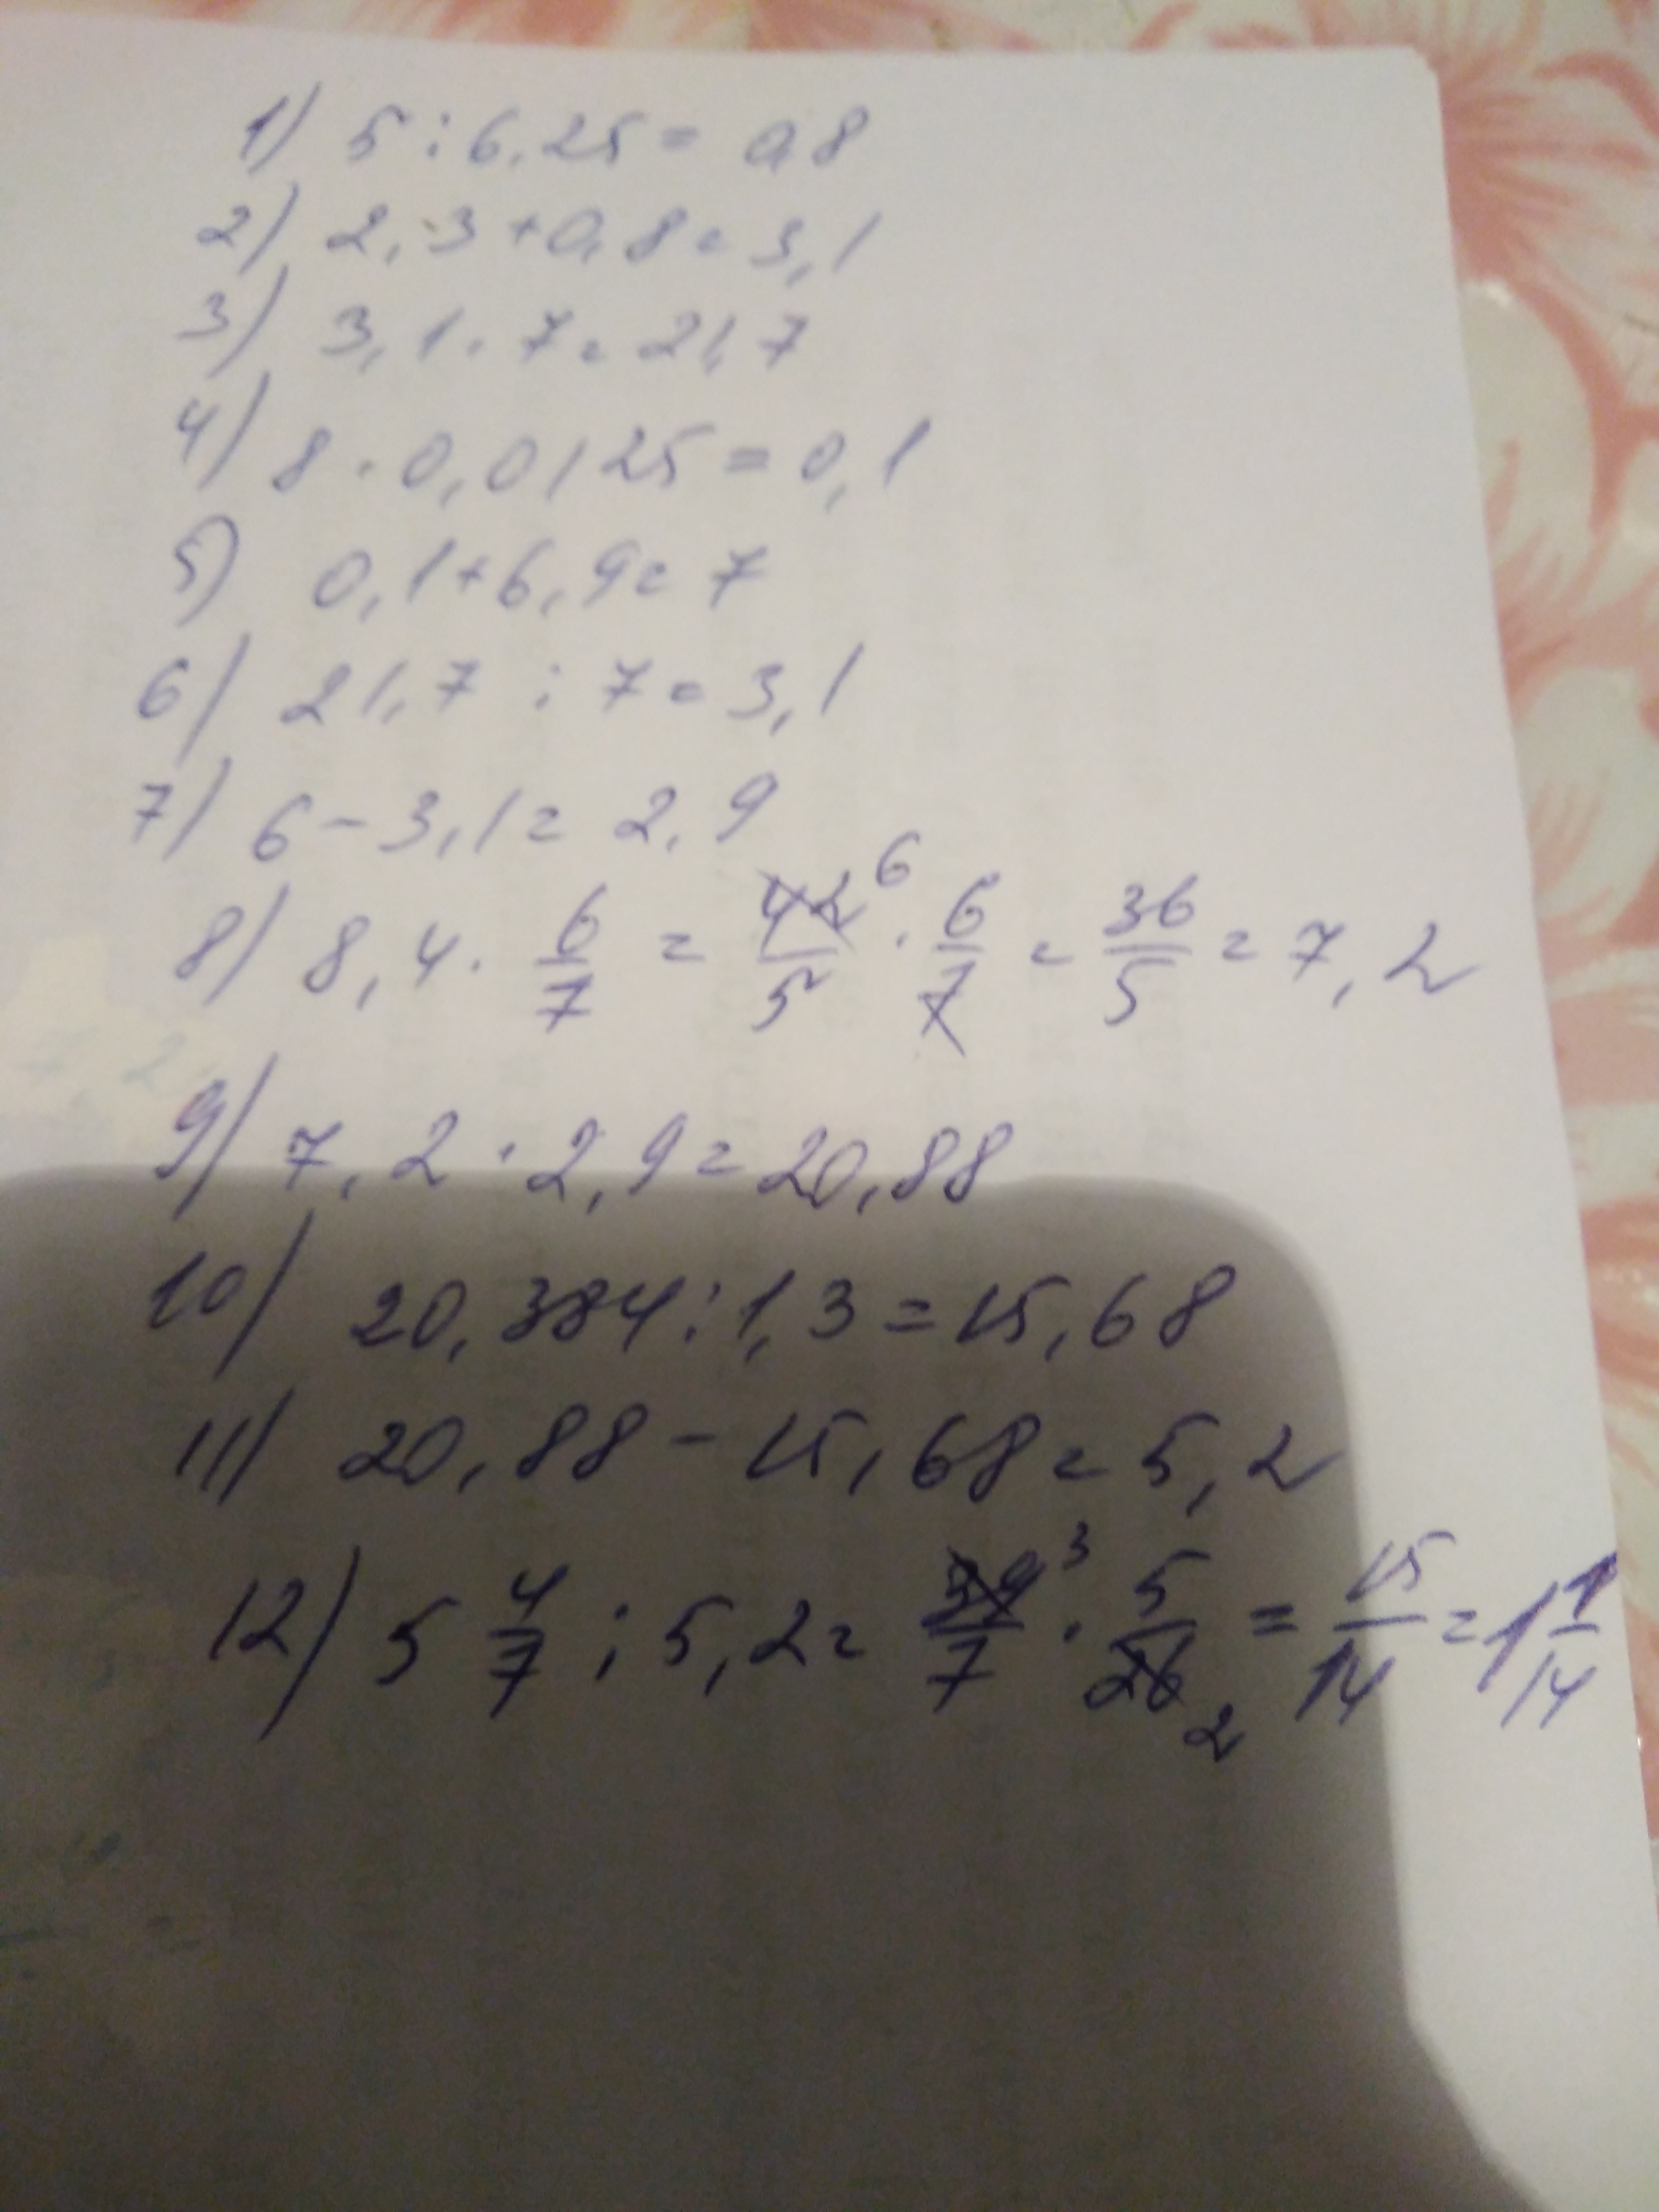 1) 5 : 6,25 = 0,8
2) 2,3 + 0,8 = 3,1
3) 3,1 · 7 = 21,7
4) 8 · 0,0125 = 0,1
5) 0,1 + 6,9 = 7
6) 21,7 : 7 = 3,1
7) 6 - 3,1 = 2,9
8) 8,4 · 6/7 = 42/5 6 · 6/7 = 36/5 = 7,2
9) 7,2 · 2,9 = 20,88
10) 20,384 : 1,3 = 15,68
11) 20,88 - 15,68 = 5,2
12) 5 4/7 : 5,2 = 39/7 3 · 5/26 2 = 15/14 = 1 1/14